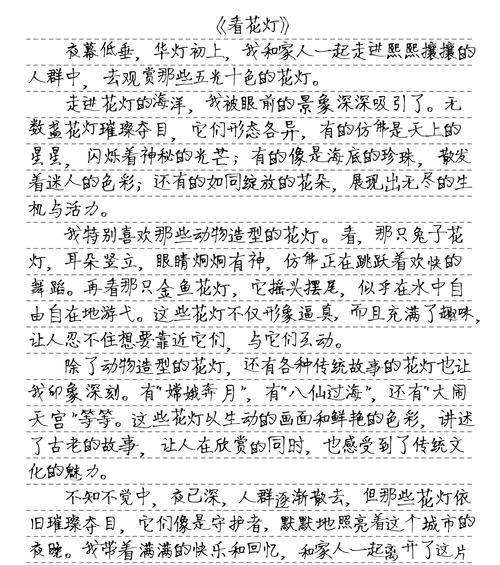 《看花灯》
夜幕低垂，华灯初上，我和家人一起走进熙熙攘攘的
人群中，去观赏那些五光十色的花灯。
走进花灯的海洋，我被眼前的景象深深吸引了。无
数盏花灯璀璨夺目，它们形态各异，有的仿佛是天上的
星星，闪烁着神秘的光芒；有的像是海底的珍珠，散发
着迷人的色彩；还有的如同绽放的花朵，展现出无尽的生
机与活力。
我特别喜欢那些动物造型的花灯。看，那只兔子花
灯，耳朵竖立，眼睛炯炯有神，仿佛正在跳跃着欢快的
舞蹈。再看那只金鱼花灯，它摇头摆尾，似乎在水中自
由自在地游弋。这些花灯不仅形象逼真，而且充满了趣味，
让人忍不住想要靠近它们，与它们互动。
除了动物造型的花灯，还有各种传统故事的花灯也让
我印象深刻。有“嫦娥奔月”，有“八仙过海”，还有“大闹
天宫”等等。这些花灯以生动的画面和鲜艳的色彩，讲述
了古老的故事，让人在欣赏的同时，也感受到了传统文
化的魅力。
不知不觉中，夜已深，人群逐渐散去，但那些花灯依
旧璀璨夺目，它们像是守护者，默默地照亮着这个城市的
夜晚。我带着满满的快乐和回忆，和家人一起离开了这片